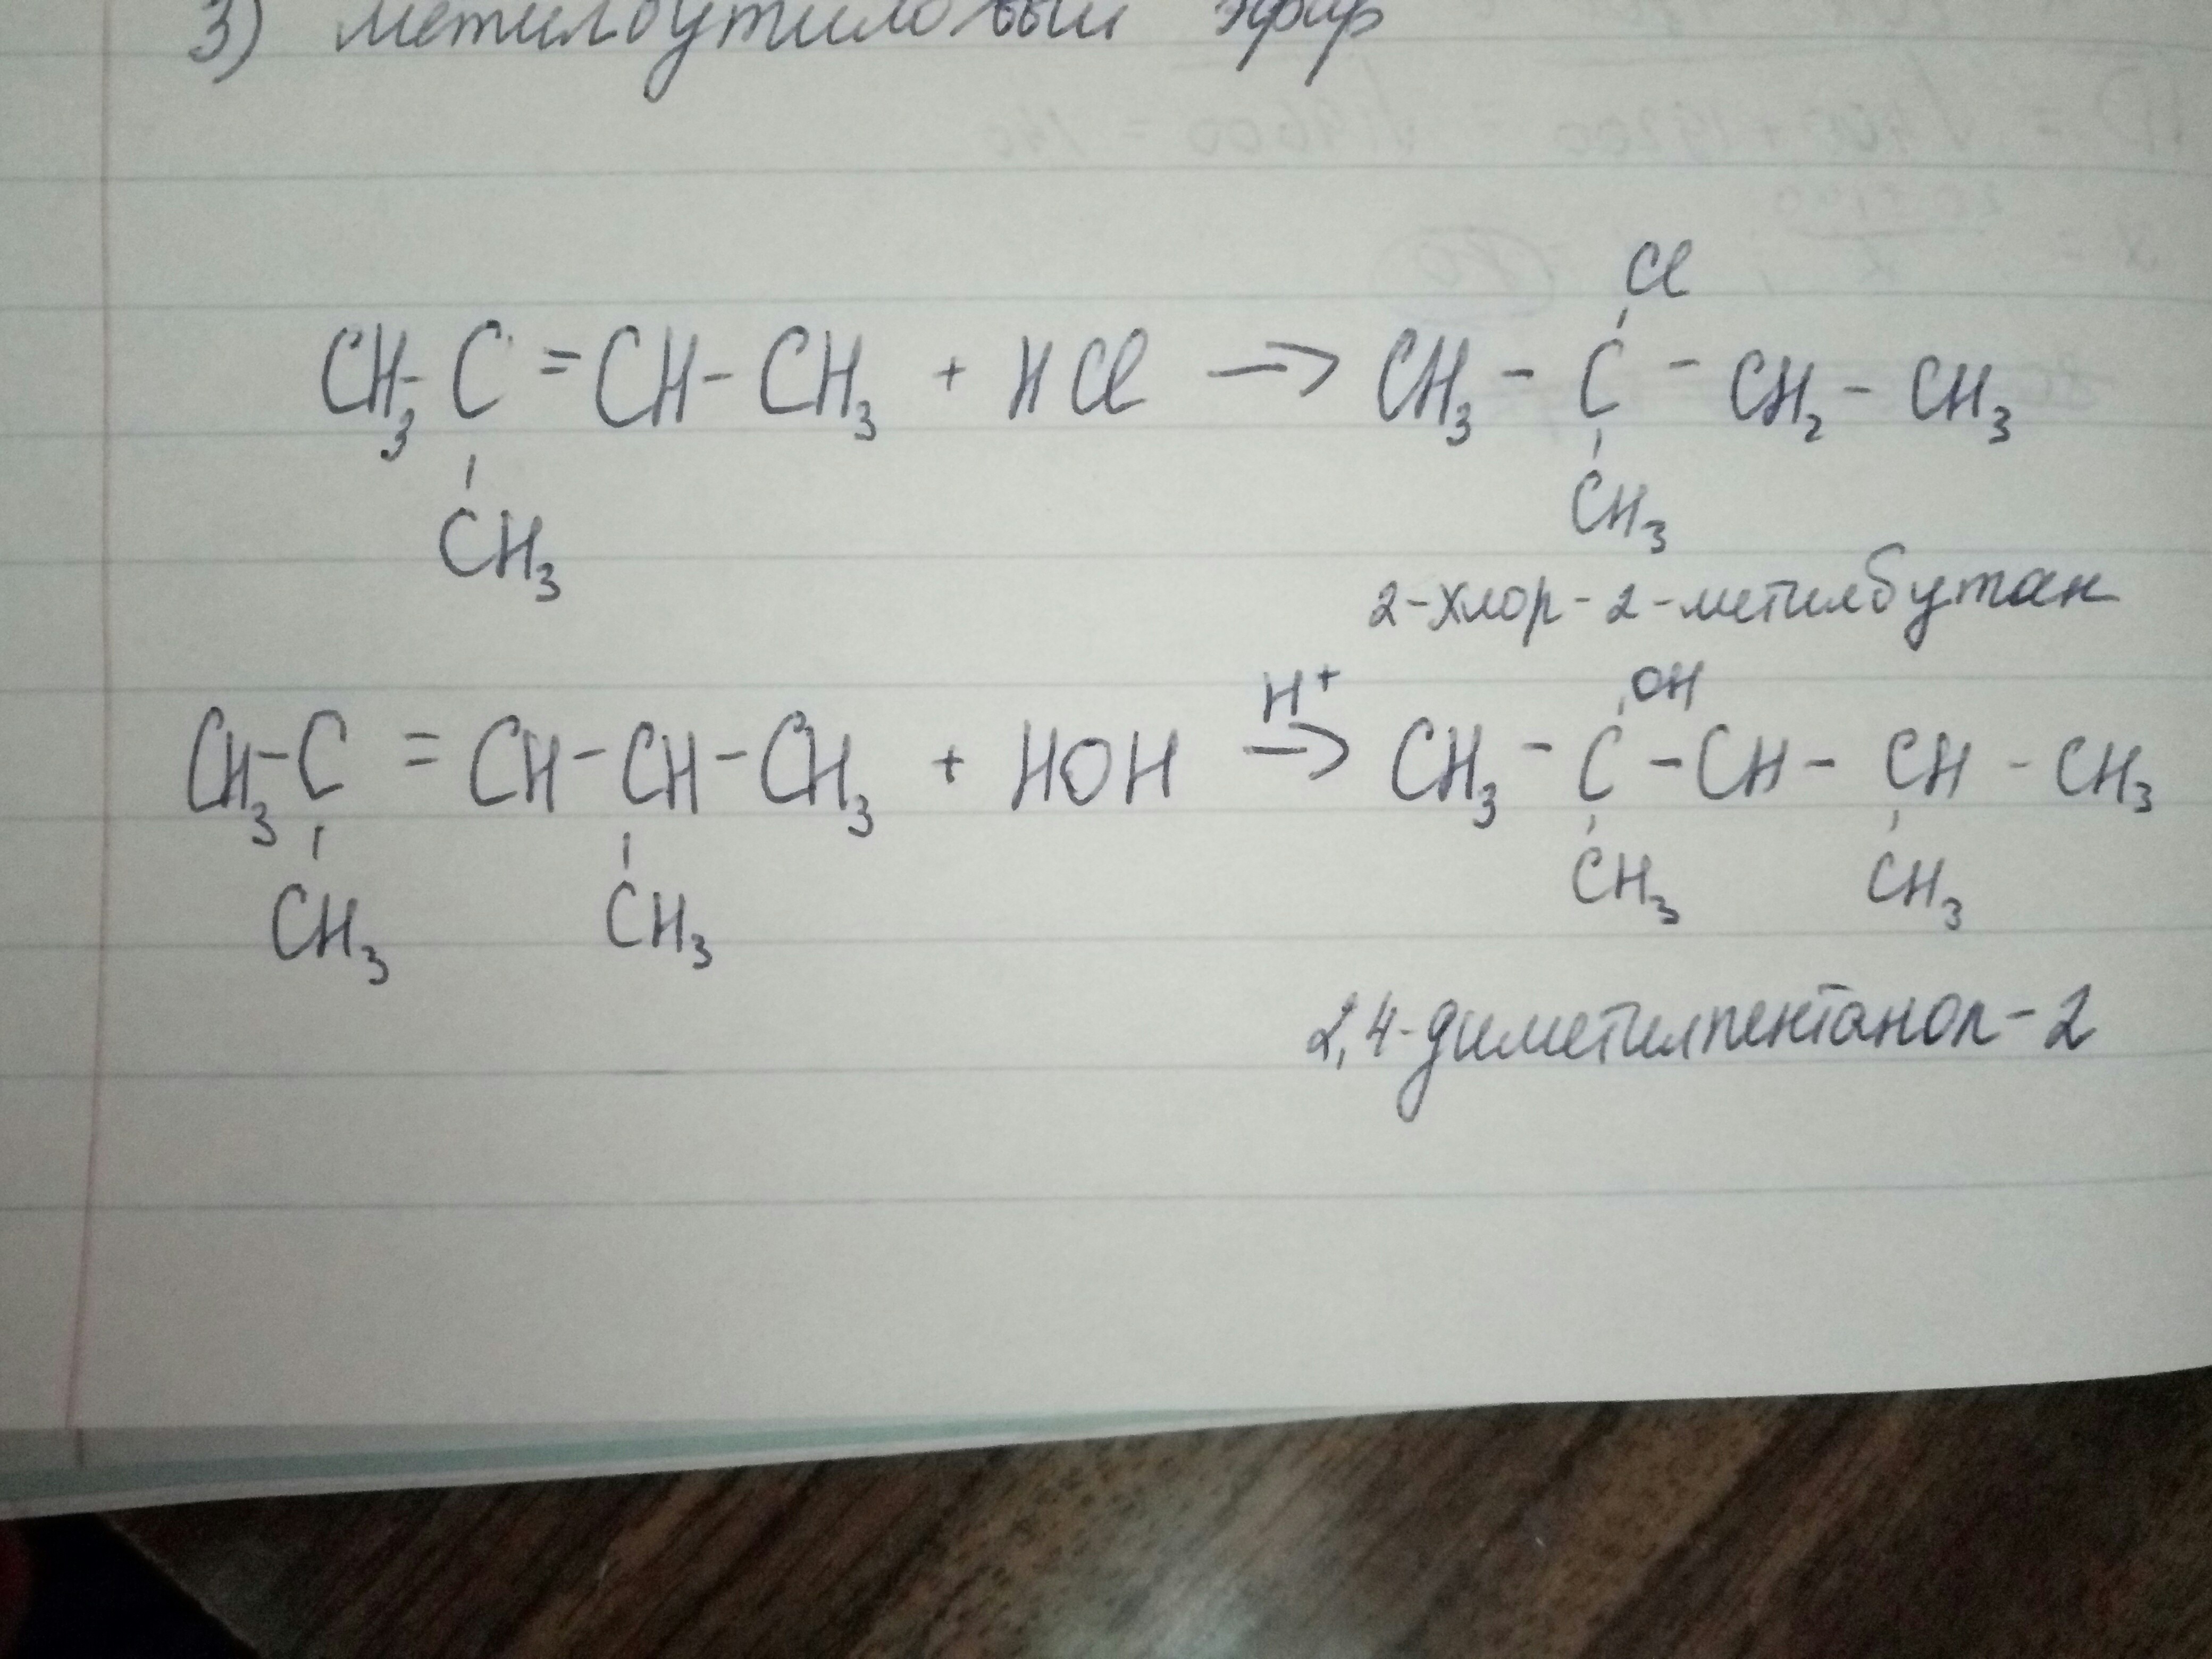 3) метилбутиловый эфир
Cl
CH₃-C=CH-CH₃ + HCl → CH₃-C-CH₂-CH₃
CH₃ CH₃
2-хлор-2-метилбутан
H⁺ OH
CH₃-C=CH-CH-CH₃ + HOH → CH₃-C-CH-CH-CH₃
CH₃ CH₃ CH₃ CH₃
2,4-диметилпентанол-2